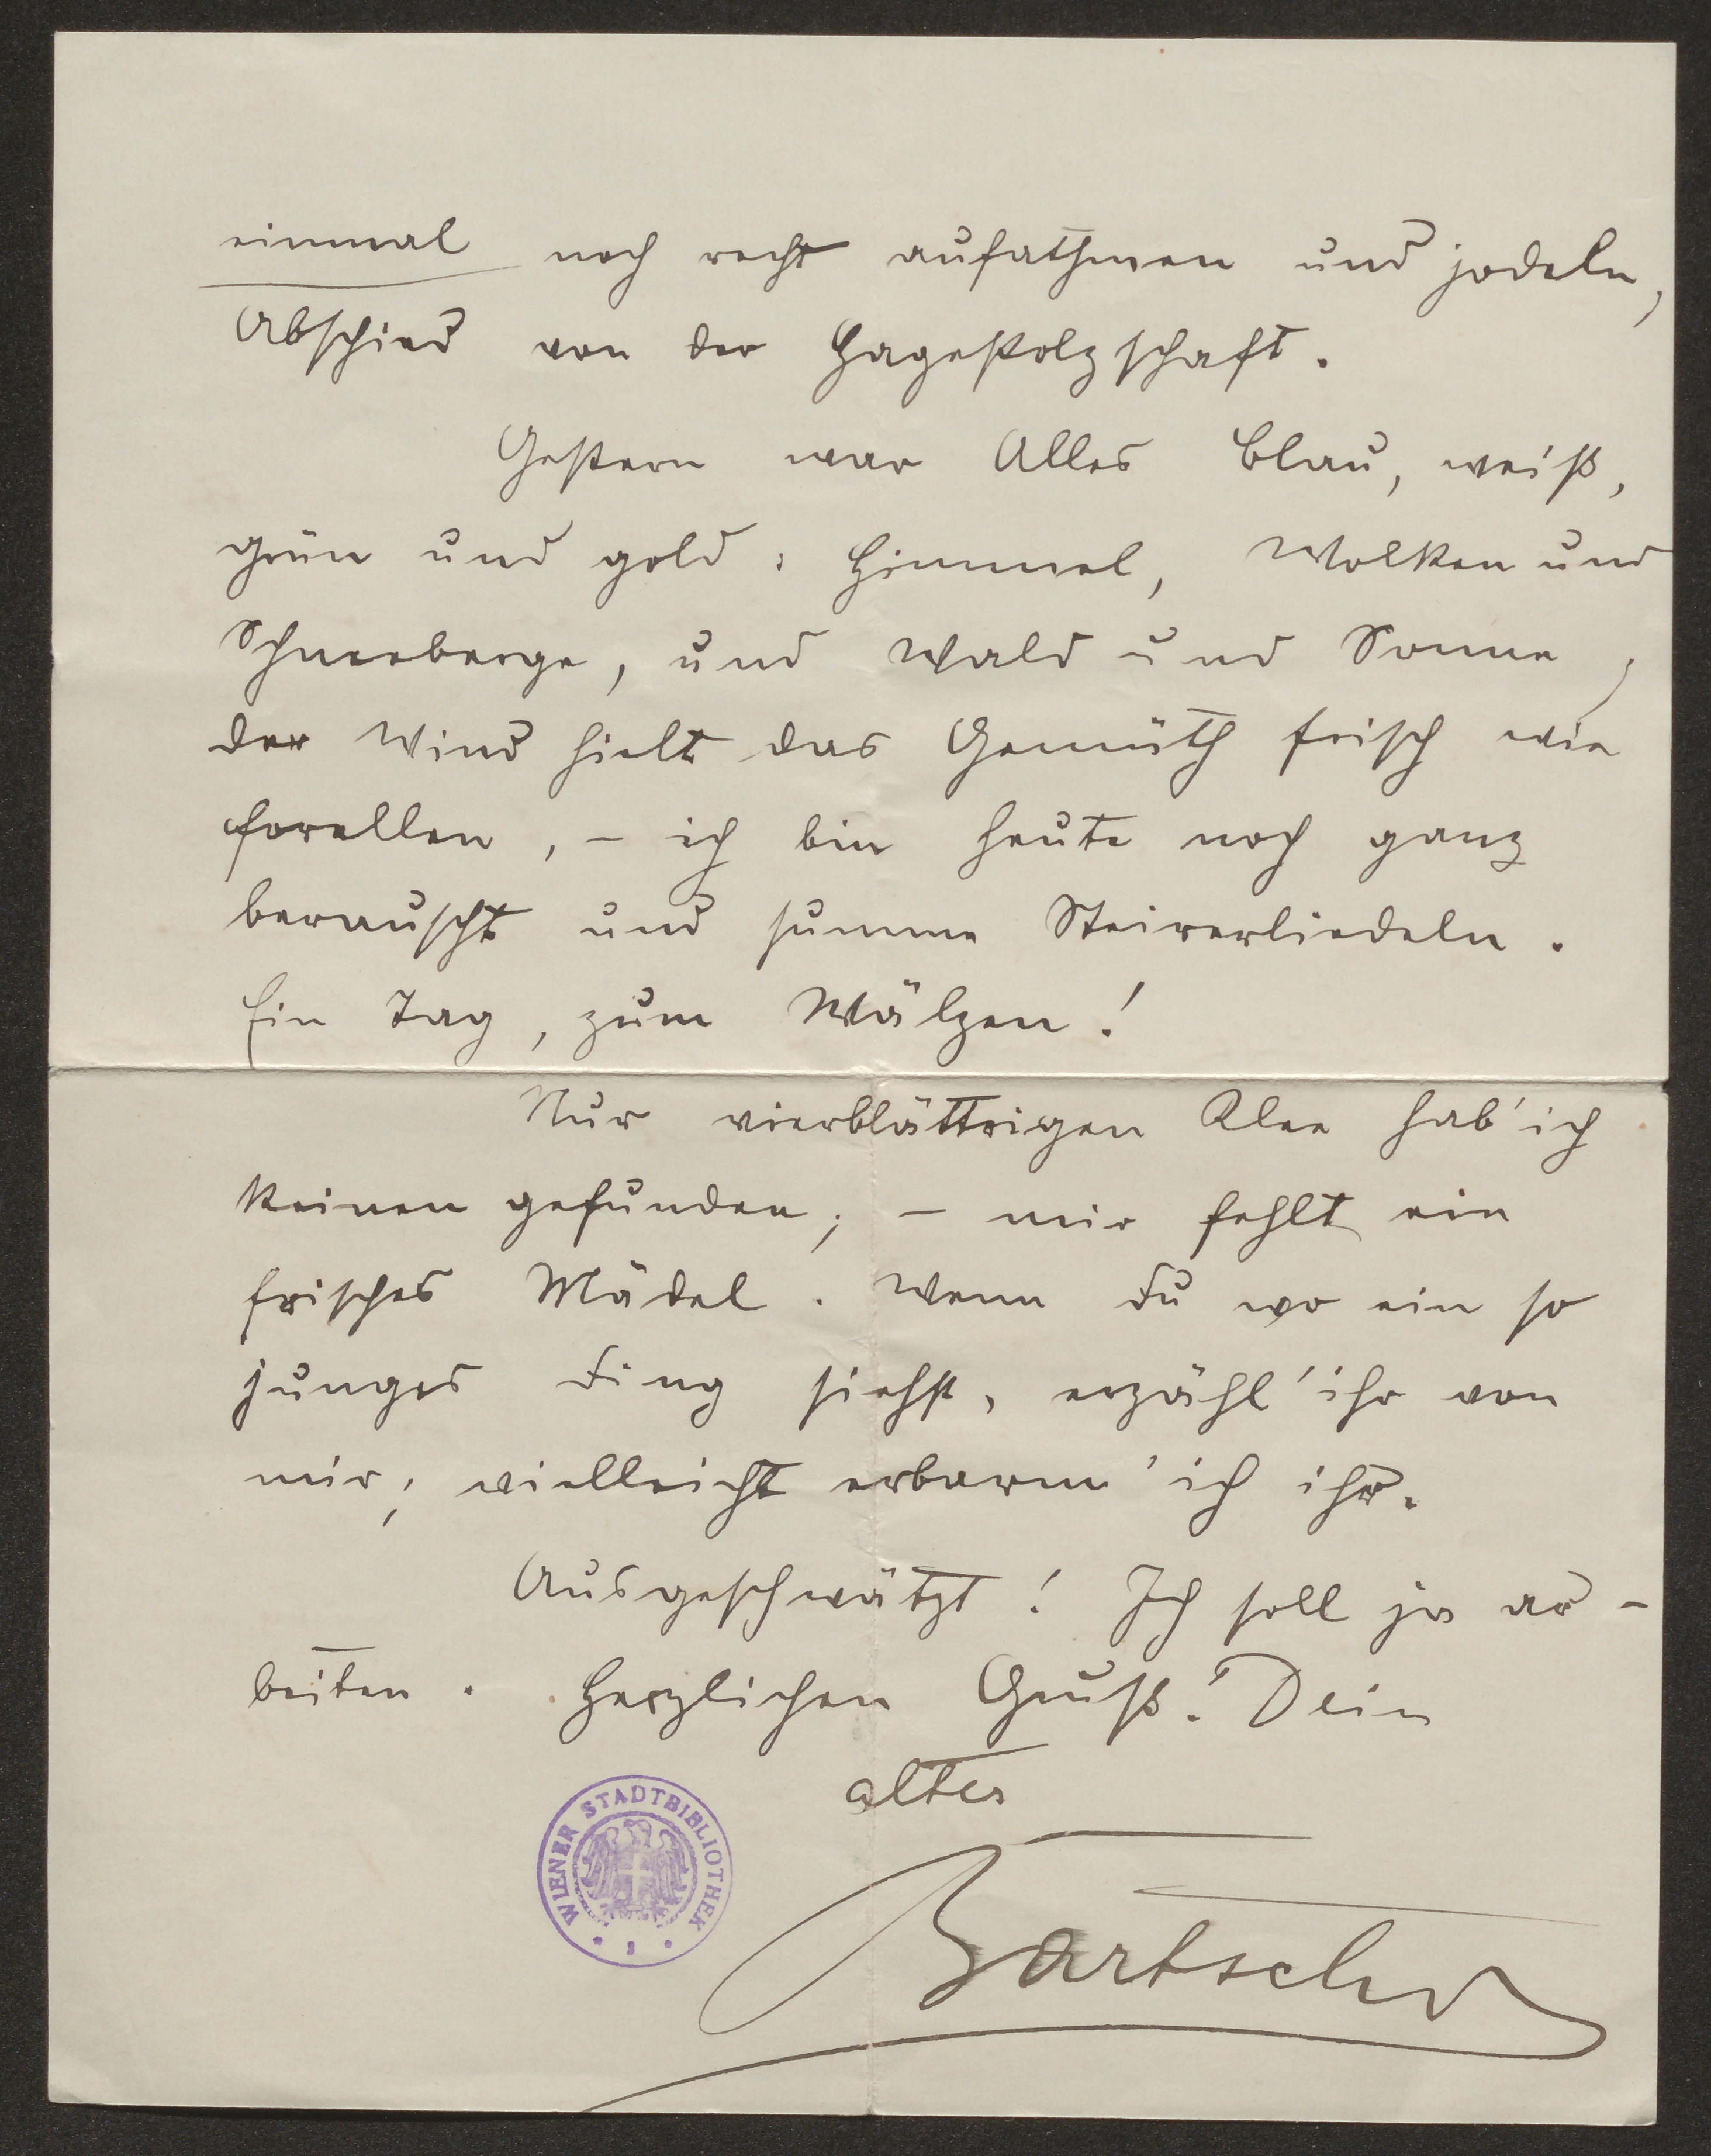 einmal noch recht aufathmen und jodeln,
Abschied von der Hagestolzschaft.
Gestern war Alles blau, weiß,
grün und gold: Himmel, Wolken und
Schneeberge, und Wald und Sonne;
der Wind hielt das Gemüth frisch wie
Forellen, – ich bin heute noch ganz
berauscht und summe Steirerliedeln.
Ein Tag, zum Wälzen!
Nur vierblättrigen Klee hab' ich
keinen gefunden; – mir fehlt ein
frisches Mädel. Wenn Du wo ein so
junges Ding siehst, erzähl' ihr von
mir; vielleicht erbarm' ich ihr.
Ausgeschwätzt! Ich soll ja ar-
beiten. Herzlichen Gruß! Dein
alter
Bartsch
WIENER STADTBIBLIOTHEK